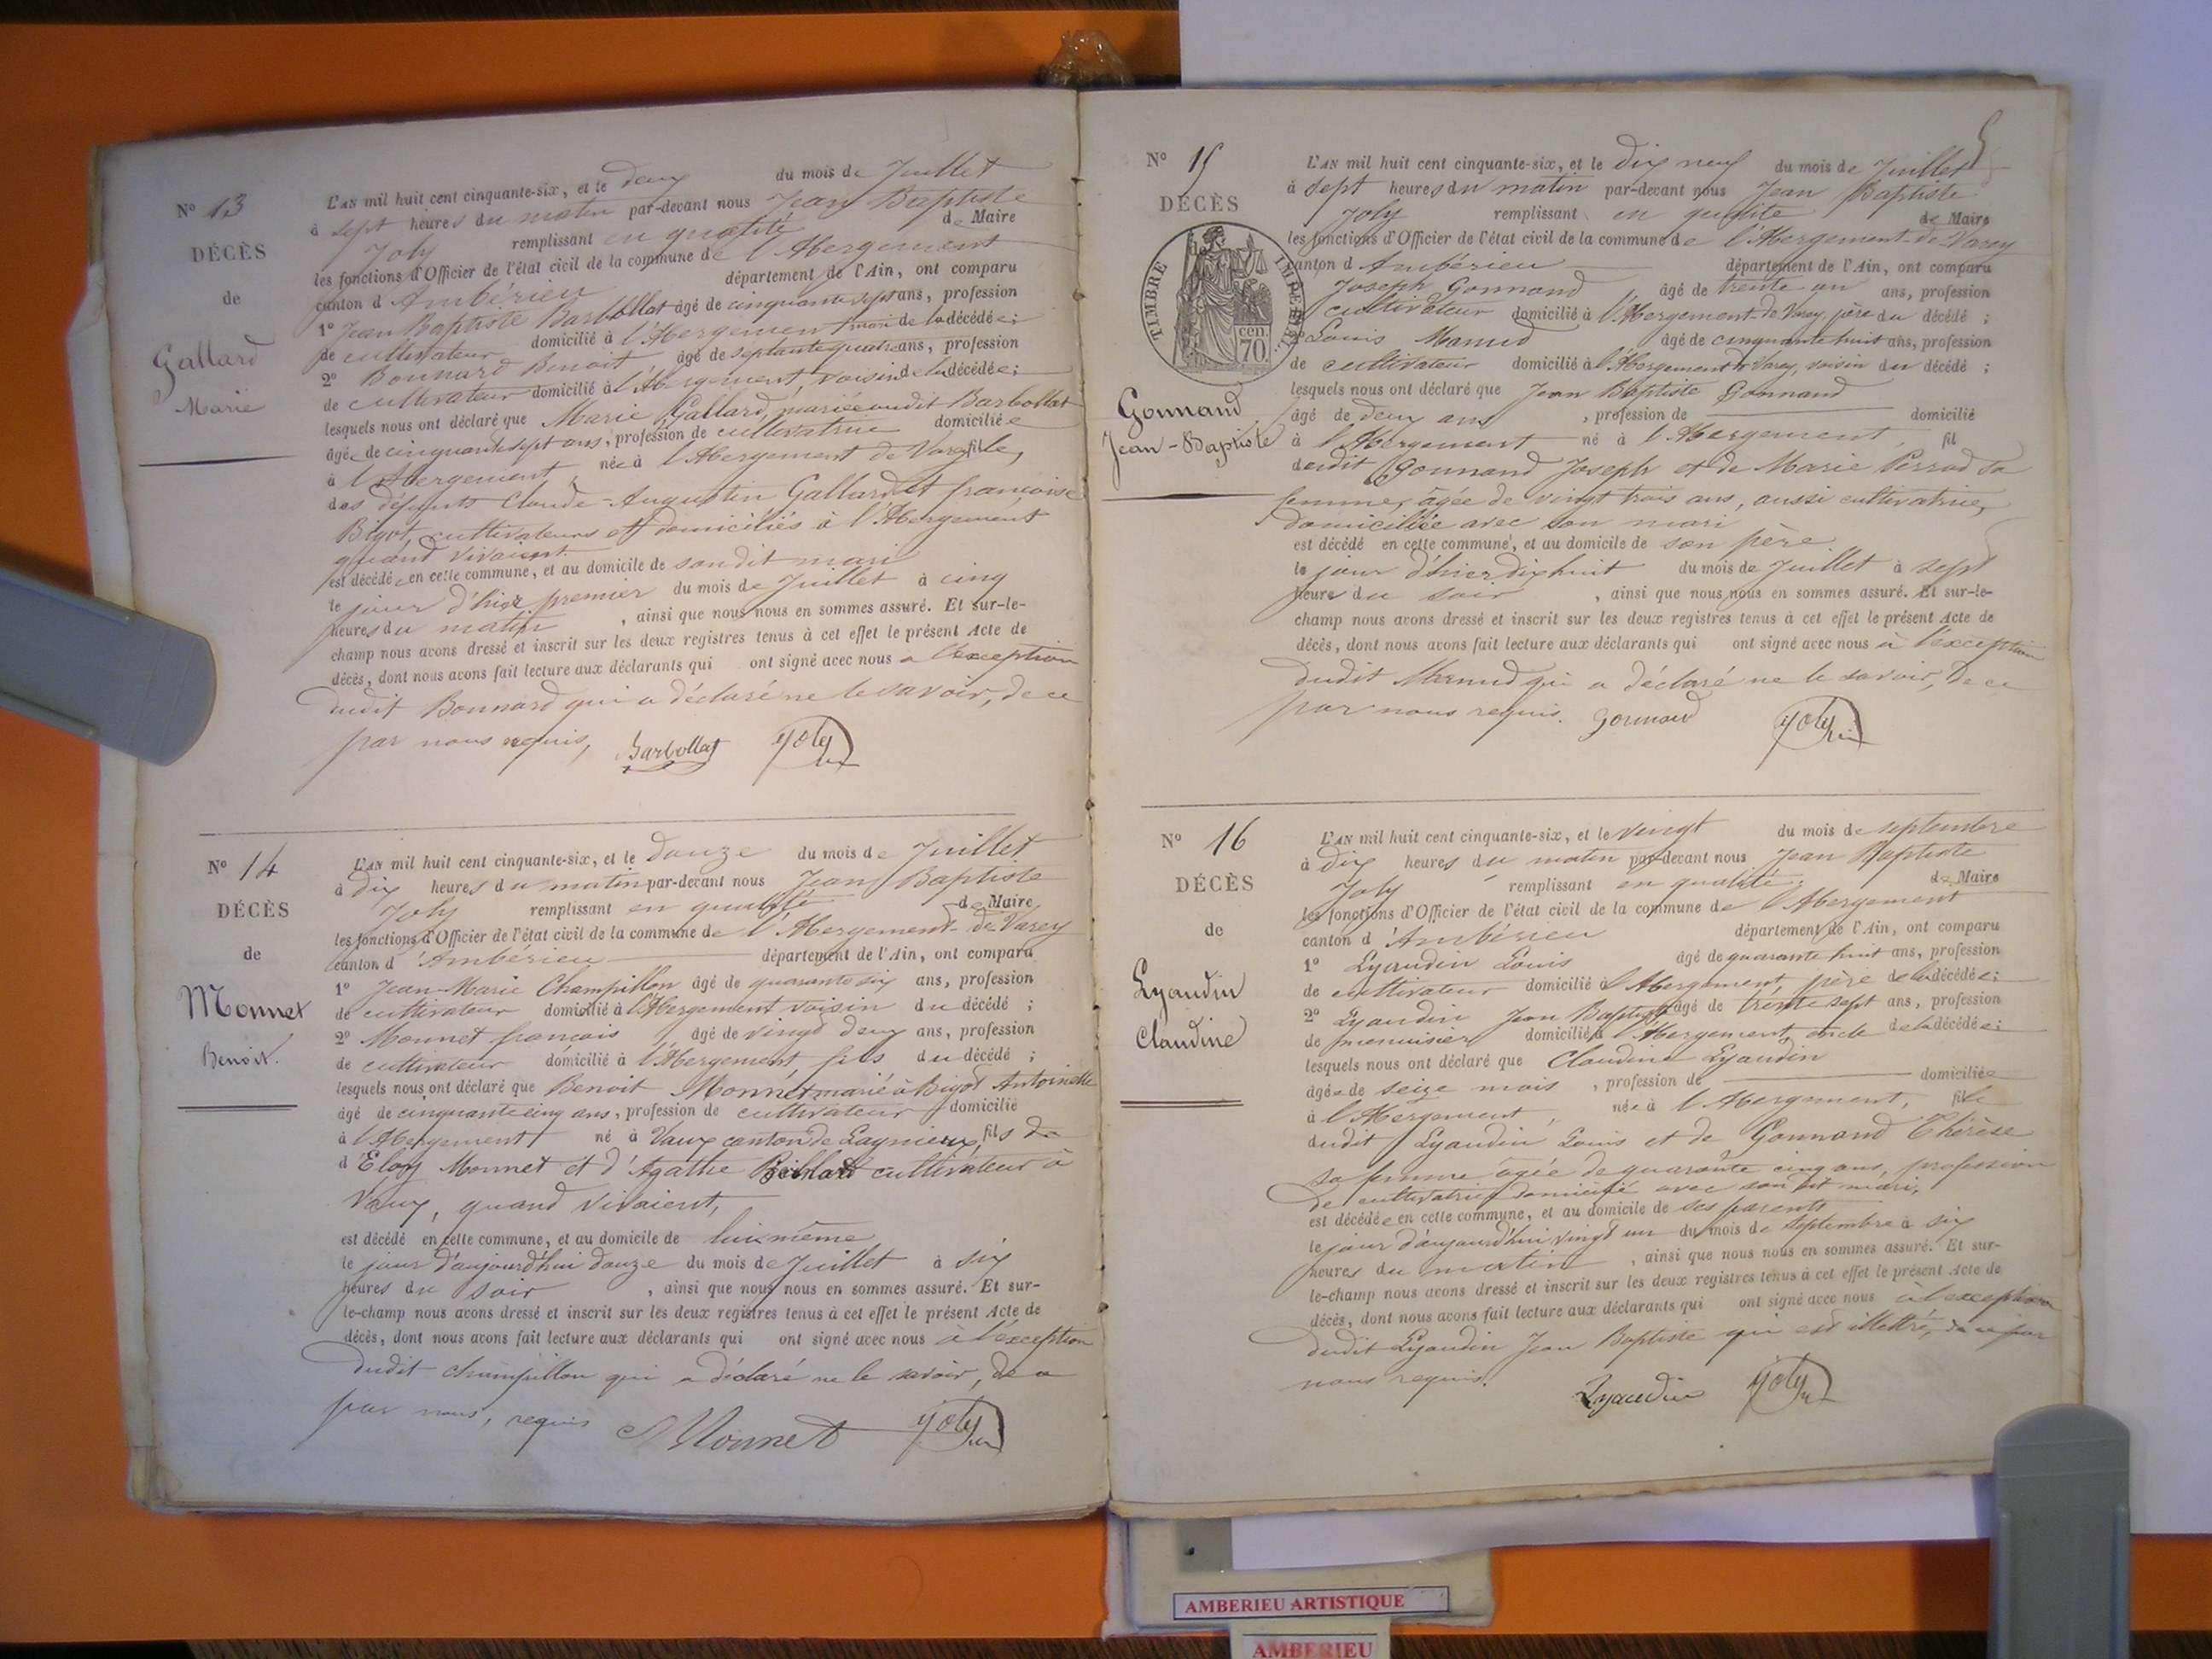 N° 13
DÉCÈS
de
Gallard
Marie
L'AN mil huit cent cinquante-six, et le deux du mois de Juillet
à sept heures du matin par-devant nous Jean Baptiste
Joly remplissant en qualité de Maire
les fonctions d'Officier de l'état civil de la commune de l'Abergement
canton d'Ambérieu département de l'Ain, ont comparu
1° Jean Baptiste Barbollat âgé de cinquante sept ans, profession
de cultivateur domicilié à l'Abergement mari de la décédée;
2° Bonnard Benoit âgé de septante quatre ans, profession
de cultivateur domicilié à l'Abergement, voisin de la décédée;
lesquels nous ont déclaré que Marie Gallard, mariée audit Barbollat
âgée de cinquante sept ans, profession de cultivatrice domiciliée
à l'Abergement née à l'Abergement de Varey fille,
des défunts Claude-Augustin Gallard et françoise
Bigot, cultivateurs et domiciliés à l'Abergement
quand vivaient
est décédée en cette commune, et au domicile de sondit mari
le jour d'hier premier du mois de Juillet à cinq
heures du matin, ainsi que nous nous en sommes assuré. Et sur-le-
champ nous avons dressé et inscrit sur les deux registres tenus à cet effet le présent Acte de
décès, dont nous avons fait lecture aux déclarants qui ont signé avec nous à l'exception
dudit Bonnard qui a déclaré ne le savoir, de ce
par nous requis, Barbollat Joly
N° 14
DÉCÈS
de
Monnet
Benoit.
L'AN mil huit cent cinquante-six, et le douze du mois de Juillet
à dix heures du matin par-devant nous Jean Baptiste
Joly remplissant en qualité de Maire
les fonctions d'Officier de l'état civil de la commune de l'Abergement-de Varey
canton d'Ambérieu département de l'Ain, ont comparu
1° Jean-Marie Champillon âgé de quarante six ans, profession
de cultivateur domicilié à l'Abergement voisin du décédé;
2° Monnet françois âgé de vingt deux ans, profession
de cultivateur domicilié à l'Abergement, fils du décédé;
lesquels nous ont déclaré que Benoit Monnet marié à Bigot Antoinette
âgé de cinquante cinq ans, profession de cultivateur domicilié
à l'Abergement né à Vaux canton de Lagnieux, fils de
d'Eloy Monnet et d'Agathe cultivateur à
Vaux, quand vivaient,
est décédé en cette commune, et au domicile de lui même
le jour d'aujourd'hui douze du mois de Juillet à six
heures du soir, ainsi que nous nous en sommes assuré. Et sur-
le-champ nous avons dressé et inscrit sur les deux registres tenus à cet effet le présent Acte de
décès, dont nous avons fait lecture aux déclarants qui ont signé avec nous à l'exception
dudit Champillon qui a déclaré ne le savoir, de ce
par nous, requis Monnet Joly
N° 15
DÉCÈS
TIMBRE IMPÉRIAL
cen. 70
Gonnand
Jean-Baptiste
L'AN mil huit cent cinquante-six, et le dix neuf du mois de Juillet
à sept heures du matin par-devant nous Jean Baptiste
Joly remplissant en qualité de Maire
les fonctions d'Officier de l'état civil de la commune de l'Abergement-de Varey
canton d'Ambérieu département de l'Ain, ont comparu
Joseph Gonnand âgé de trente un ans, profession
cultivateur domicilié à l'Abergement-de Varey, père du décédé;
Louis âgé de cinquante huit ans, profession
de cultivateur domicilié à l'Abergement de Varey, voisin du décédé;
lesquels nous ont déclaré que Jean Baptiste Gonnand
âgé de deux ans, profession de domicilié
à l'Abergement né à l'Abergement fil
dudit Gonnand Joseph et de Marie Perrod sa
femme, âgée de vingt trois ans, aussi cultivatrice,
domiciliée avec son mari
est décédé en cette commune, et au domicile de son père
le jour d'hier dix huit du mois de Juillet à sept
heure du soir, ainsi que nous nous en sommes assuré. Et sur-le-
champ nous avons dressé et inscrit sur les deux registres tenus à cet effet le présent Acte de
décès, dont nous avons fait lecture aux déclarants qui ont signé avec nous à l'exception
dudit qui a déclaré ne le savoir, de ce
par nous requis. Gonnand Joly
N° 16
DÉCÈS
de
Lyaudin
Claudine
L'AN mil huit cent cinquante-six, et le vingt du mois de septembre
à dix heures du matin par-devant nous Jean Baptiste
Joly remplissant en qualité de Maire
les fonctions d'Officier de l'état civil de la commune de l'Abergement
canton d'Ambérieu département de l'Ain, ont comparu
1° Lyaudin Louis âgé de quarante huit ans, profession
de cultivateur domicilié à l'Abergement, père de la décédée;
2° Lyaudin Jean Baptiste âgé de trente sept ans, profession
de menuisier domicilié à l'Abergement, oncle de la décédée;
lesquels nous ont déclaré que Claudine Lyaudin
âgée de seize mois, profession de domiciliée
à l'Abergement, née à l'Abergement, fille
dudit Lyaudin Louis et de Gonnand Thérèse
sa femme âgée de quarante cinq ans, profession
de cultivatrice domicilié avec son dit mari,
est décédée en cette commune, et au domicile de ses parents
le jour d'aujourd'hui vingt un du mois de septembre à six
heures du matin, ainsi que nous nous en sommes assuré. Et sur-
le-champ nous avons dressé et inscrit sur les deux registres tenus à cet effet le présent Acte de
décès, dont nous avons fait lecture aux déclarants qui ont signé avec nous à l'exception
dudit Lyaudin Jean Baptiste qui est illettré, de ce par
nous requis. Lyaudin Joly
AMBERIEU ARTISTIQUE
AMBERIEU